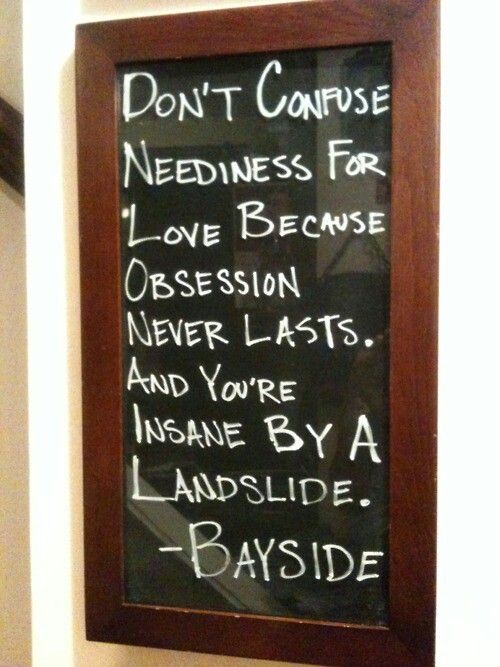 Don't Confuse
Neediness For
Love Because
Obsession
Never Lasts.
And You're
Insane By A
Landslide.
-Bayside